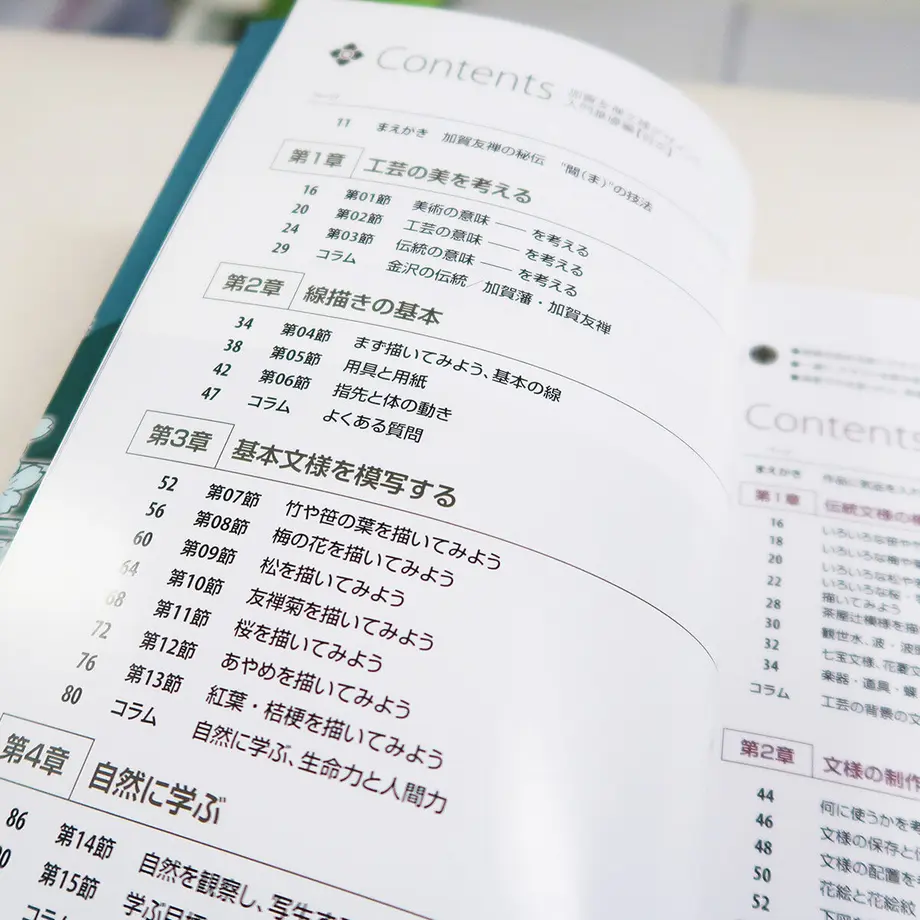 Contents
11 まえがき 加賀友禅の秘伝 "間(ま)"の技法
第1章 工芸の美を考える
16 第01節 美術の意味 ── を考える
20 第02節 工芸の意味 ── を考える
24 第03節 伝統の意味 ── を考える
29 コラム 金沢の伝統／加賀藩・加賀友禅
第2章 線描きの基本
34 第04節 まず描いてみよう、基本の線
38 第05節 用具と用紙
42 第06節 指先と体の動き
47 コラム よくある質問
第3章 基本文様を模写する
52 第07節 竹や笹の葉を描いてみよう
56 第08節 梅の花を描いてみよう
60 第09節 松を描いてみよう
64 第10節 友禅菊を描いてみよう
68 第11節 桜を描いてみよう
72 第12節 あやめを描いてみよう
76 第13節 紅葉・桔梗を描いてみよう
80 コラム 自然に学ぶ、生命力と人間力
第4章 自然に学ぶ
86 第14節 自然を観察し、写生する
第15節
コラム
Contents
まえがき
第1章 伝統文様の
16 いろいろな笹や
18 いろいろな梅や
20 いろいろな松や
22 いろいろな桜・
描いてみよう
28 茶屋辻模様を描
30 観世水、波・波
32 七宝文様、花菱文
34 楽器・道具・蝶
コラム 工芸の背景の文
第2章 文様の制作
44 何に使うかを考
46 文様の保存と
48 文様の配置を考
50 花絵と花絵紋
52